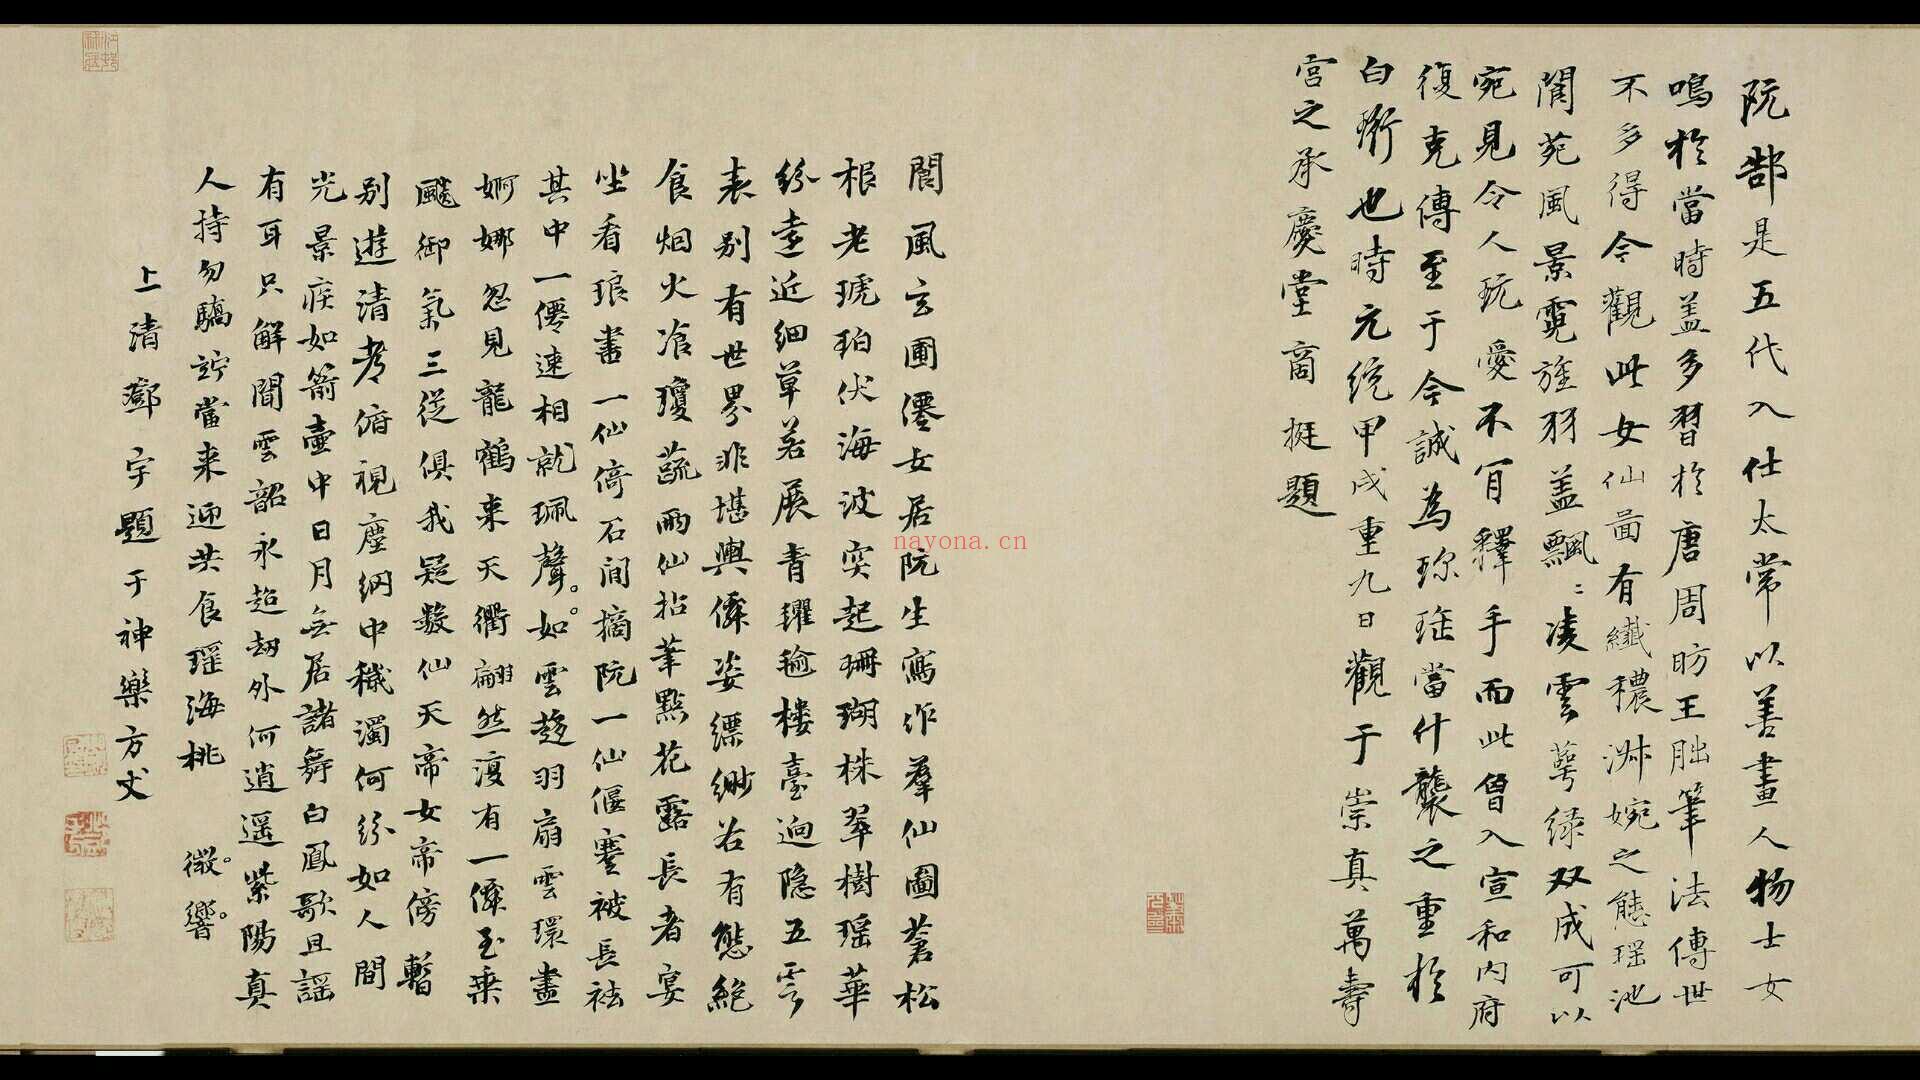 阮郜是五代入仕太常以善畫人物士女
鳴於當時盖多習於唐周昉王朏筆法傳世
不多得今觀此女仙啚有纖穠淋婉之態瑶池
閬苑風景霓旌羽盖飄〻淩雲萼緑双成可以
宛見令人玩愛不肎釋手而此曾入宣和内府
復克傳至于今誠為珎瑶當什襲之重於
白珩也時元統甲戌重九日觀于崇真萬壽
宫之承慶堂商挺題
閬風玄圃僊女居阮生寫作羣仙圖蒼松
根老琥珀伏海波突起珊瑚株翠樹瑶華
紛逺近細草若展青氍毹樓臺迥隐五雲
表别有世界非堪輿僊姿縹緲各有態絶
食烟火飡瓊蔬兩仙拈筆點花露長者宴
坐看琅書一仙倚石間摘阮一仙偃蹇被長袪
其中一僊速相就珮聲如雲趍羽扇雲環畫
婀娜忽見龍鶴来天衢翩然復有一僊玉乗
飈御氣三從俱我疑數仙天帝女帝傍暫
别遊清考俯視塵網中穢濁何紛如人間
光景疾如箭壷中日月無居諸舞白鳳歌且謡
有耳只解聞雲韶永超劫外何逍遥紫陽真
人持勿驕竚當来迎共食瑶海桃 徽響
上清鄧宇題于神樂方丈
nayona.cn